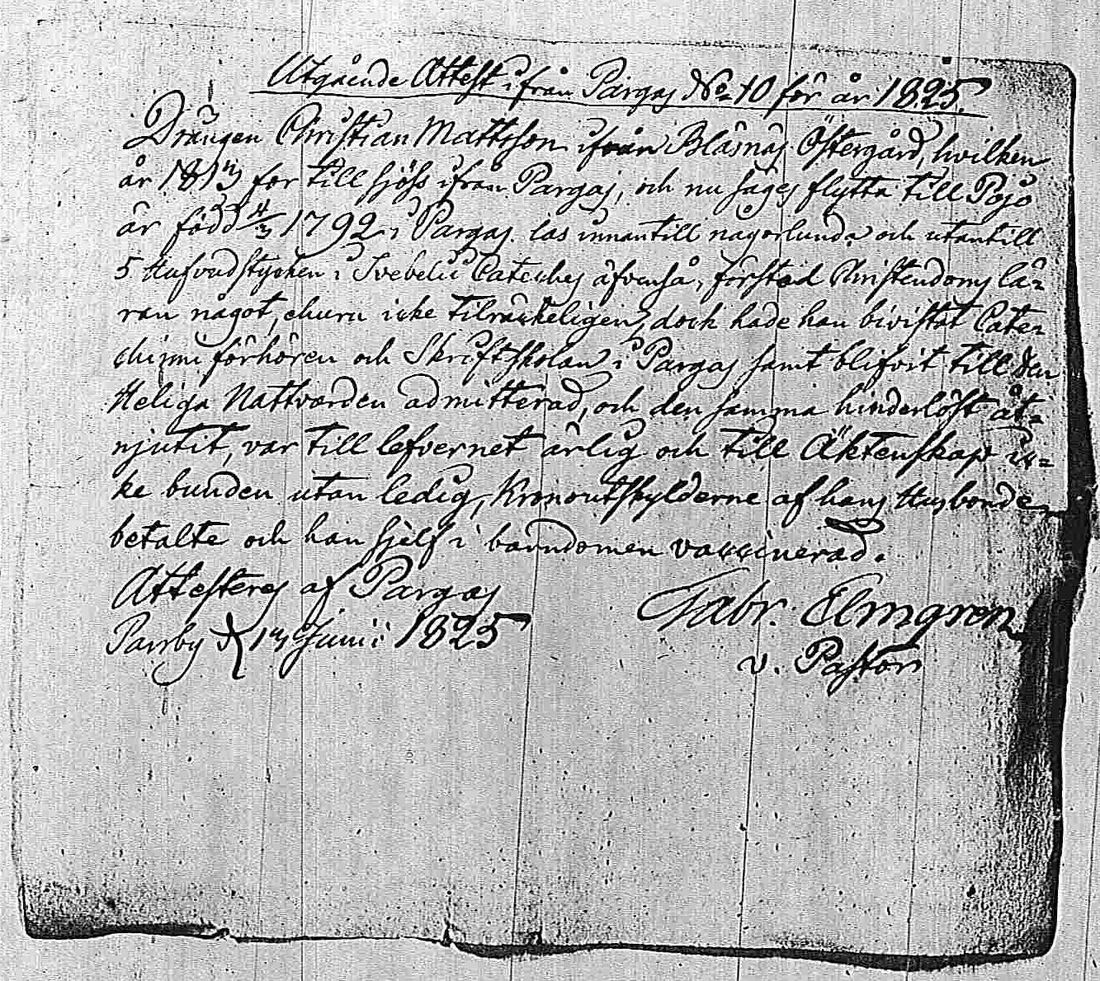 Utgående Attest ifrån Pargas No 10 för år 1825.
Drängen Christian Mattsson ifrån Blåsnäs Östergård, hvilken
år 1813 for till sjöss ifrån Pargas, och nu säges flytta till Pojo
är född 4/3 1792 i Pargas. las innantill någorlunda och utantill
5 Hufvudstycken i Svebelii Cateches äfvenså, förstod Christendoms lä-
ran något, ehuru icke tilräckeligen, dock hade han bivistat Cate
chismi förhören och Skriftskolan i Pargas samt blifvit till den
Heliga Nattvarden admitterad, och den samma hinderlöst åt-
njutit, var till lefvernet ärlig och till Äktenskap ic-
ke bunden utan ledig, Kronoutskylderne af hans Husbonde
betalte och han sjelf i barndomen vaccinerad.
Attesteras af Pargas
Parsby d Junii 1825
Gabr. Elmgren
v. Pastor